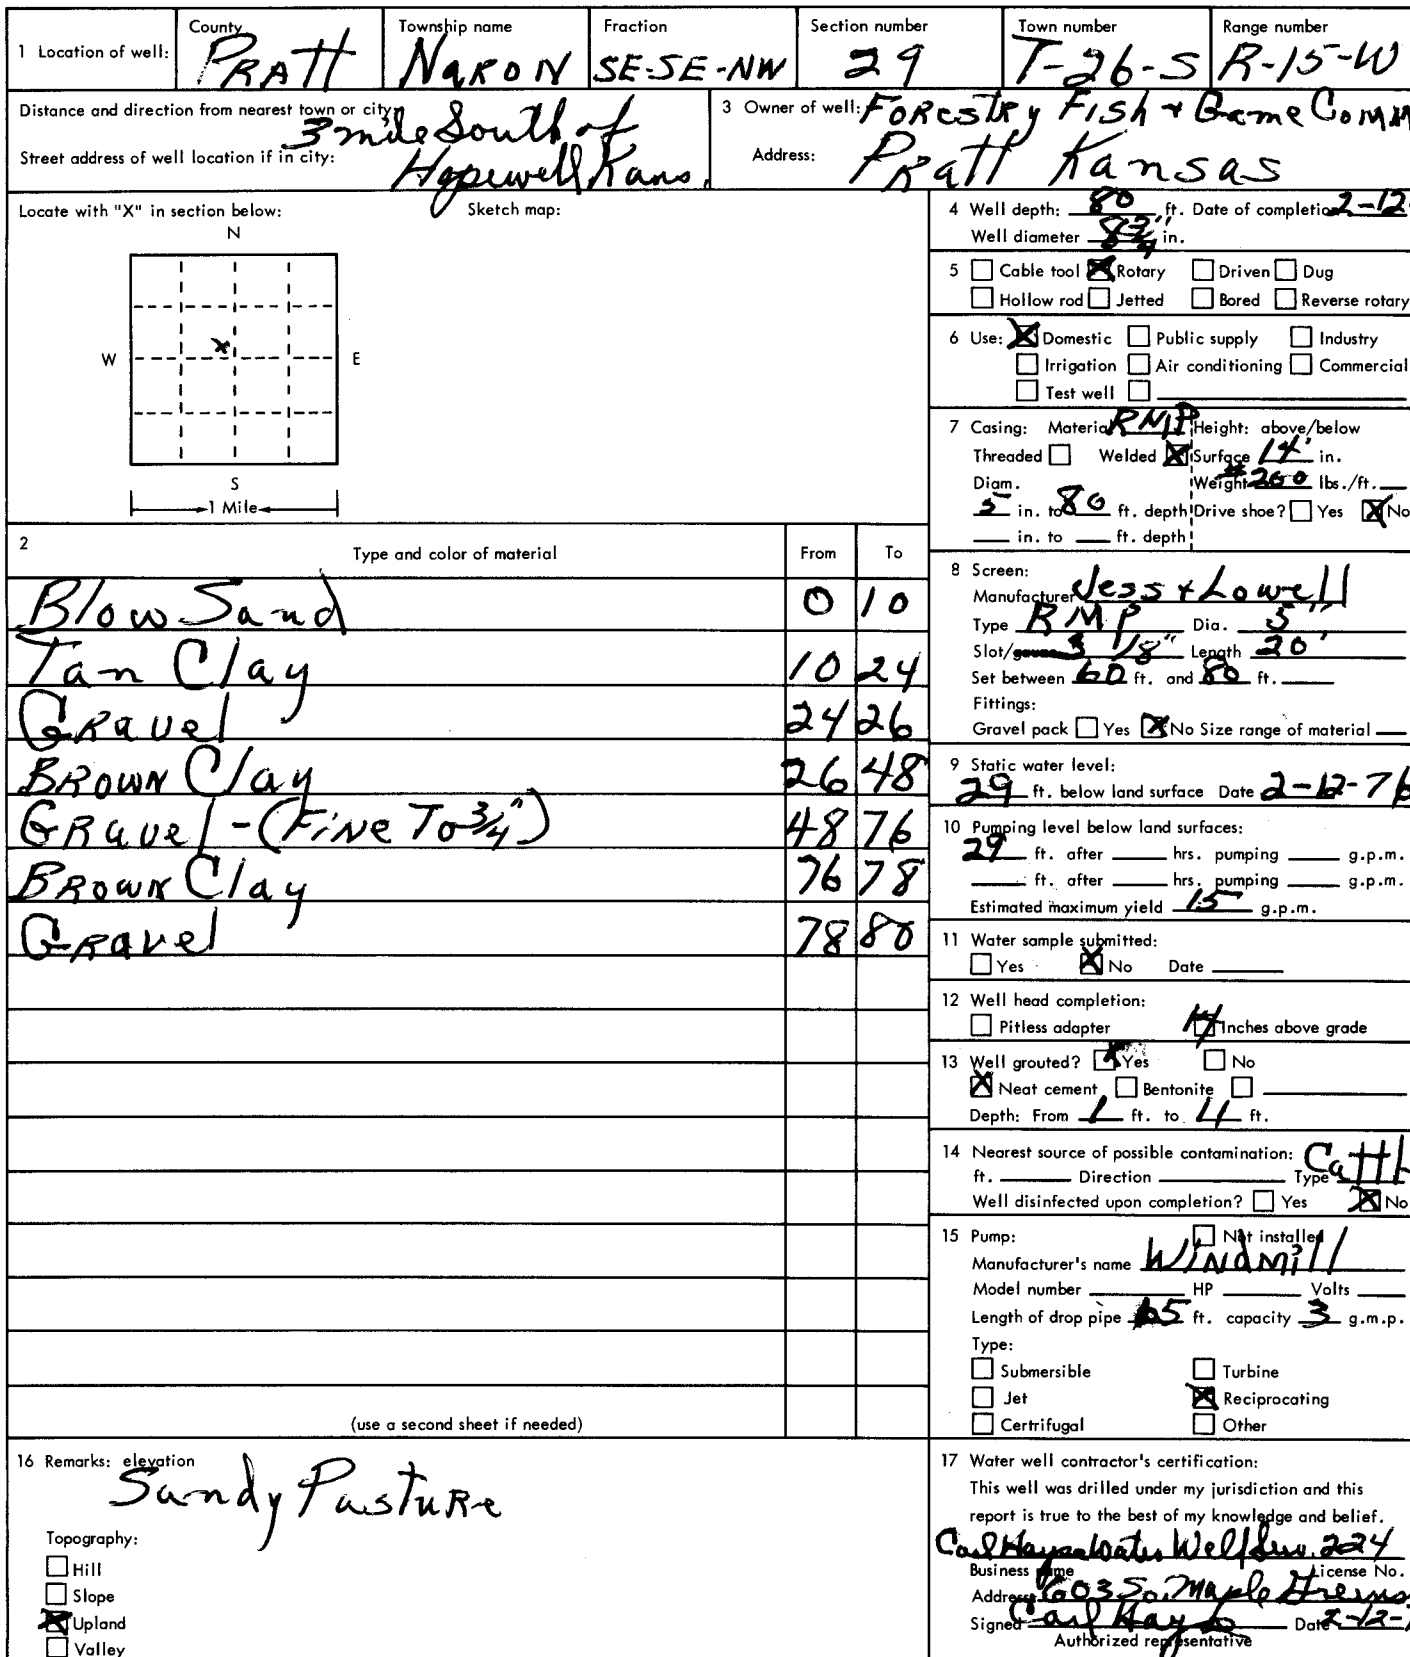 1 Location of well: County PRATT Township name NARON Fraction SE-SE-NW Section number 29 Town number T-26-S Range number R-15-W
Distance and direction from nearest town or city: 3 mile South of
Street address of well location if in city: Hopewell Kans.
3 Owner of well: Forestry Fish + Game Comm
Address: Pratt Kansas
Locate with "X" in section below: Sketch map:
N
W X E
S
1 Mile
2 Type and color of material From To
Blow Sand 0 10
Tan Clay 10 24
Gravel 24 26
Brown Clay 26 48
Gravel - (Fine To 3/4") 48 76
Brown Clay 76 78
Gravel 78 80
(use a second sheet if needed)
4 Well depth: 80 ft. Date of completio 2-12-
Well diameter 8 3/4" in.
5 ☐ Cable tool ☒ Rotary ☐ Driven ☐ Dug
☐ Hollow rod ☐ Jetted ☐ Bored ☐ Reverse rotary
6 Use: ☒ Domestic ☐ Public supply ☐ Industry
☐ Irrigation ☐ Air conditioning ☐ Commercial
☐ Test well ☐
7 Casing: Material RMP Height: above/below
Threaded ☐ Welded ☒ Surface 14" in.
Diam. Weight #200 lbs./ft.
5 in. to 80 ft. depth Drive shoe? ☐ Yes ☒ No
in. to ft. depth
8 Screen:
Manufacturer Jess + Lowell
Type RMP Dia. 5"
Slot/ 1/8" Length 20'
Set between 60 ft. and 80 ft.
Fittings:
Gravel pack ☐ Yes ☒ No Size range of material
9 Static water level:
29 ft. below land surface Date 2-12-76
10 Pumping level below land surfaces:
29 ft. after hrs. pumping g.p.m.
ft. after hrs. pumping g.p.m.
Estimated maximum yield 15 g.p.m.
11 Water sample submitted:
☐ Yes ☒ No Date
12 Well head completion:
☐ Pitless adapter 14 Inches above grade
13 Well grouted? ☒ Yes ☐ No
☒ Neat cement ☐ Bentonite ☐
Depth: From 1 ft. to 11 ft.
14 Nearest source of possible contamination:
ft. Direction Type Cattl
Well disinfected upon completion? ☐ Yes ☒ No
15 Pump: ☐ Not installed
Manufacturer's name Windmill
Model number HP Volts
Length of drop pipe 65 ft. capacity 3 g.m.p.
Type:
☐ Submersible ☐ Turbine
☐ Jet ☒ Reciprocating
☐ Certrifugal ☐ Other
16 Remarks: elevation
Sandy Pasture
Topography:
☐ Hill
☐ Slope
☒ Upland
☐ Valley
17 Water well contractor's certification:
This well was drilled under my jurisdiction and this
report is true to the best of my knowledge and belief.
Carl Hays Water Well Serv. 224
Business name License No.
Address 603 So. Maple
Signed Carl Hays Date 2-12-
Authorized representative